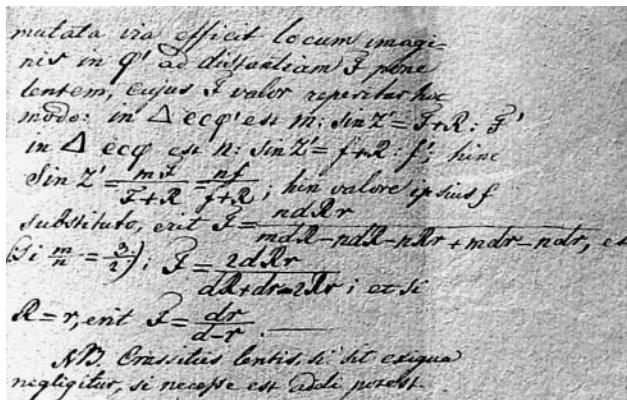 mutata via efficit locum imagi-
nis in φ' ad distantiam F pone
lentem, cujus F valor reperitur hoc
modo: in Δ ecφ' est m: sin Z' = F+R: F'
in Δ ecφ est n: sin Z' = f+R: f'; hinc
Sin Z' = mF/F+R = nf/f+R; hin valore ipsius f
substituto, erit F = ndRr/mdR-ndR-nRr+mdr-ndr, et
(Si m/n = 3/2); F = 2dRr/dR+dr-2Rr; et si
R=r, erit F = dr/d-r.
NB. Crassities lentis, si sit exigua
negligitur, si necesse est addi potest.